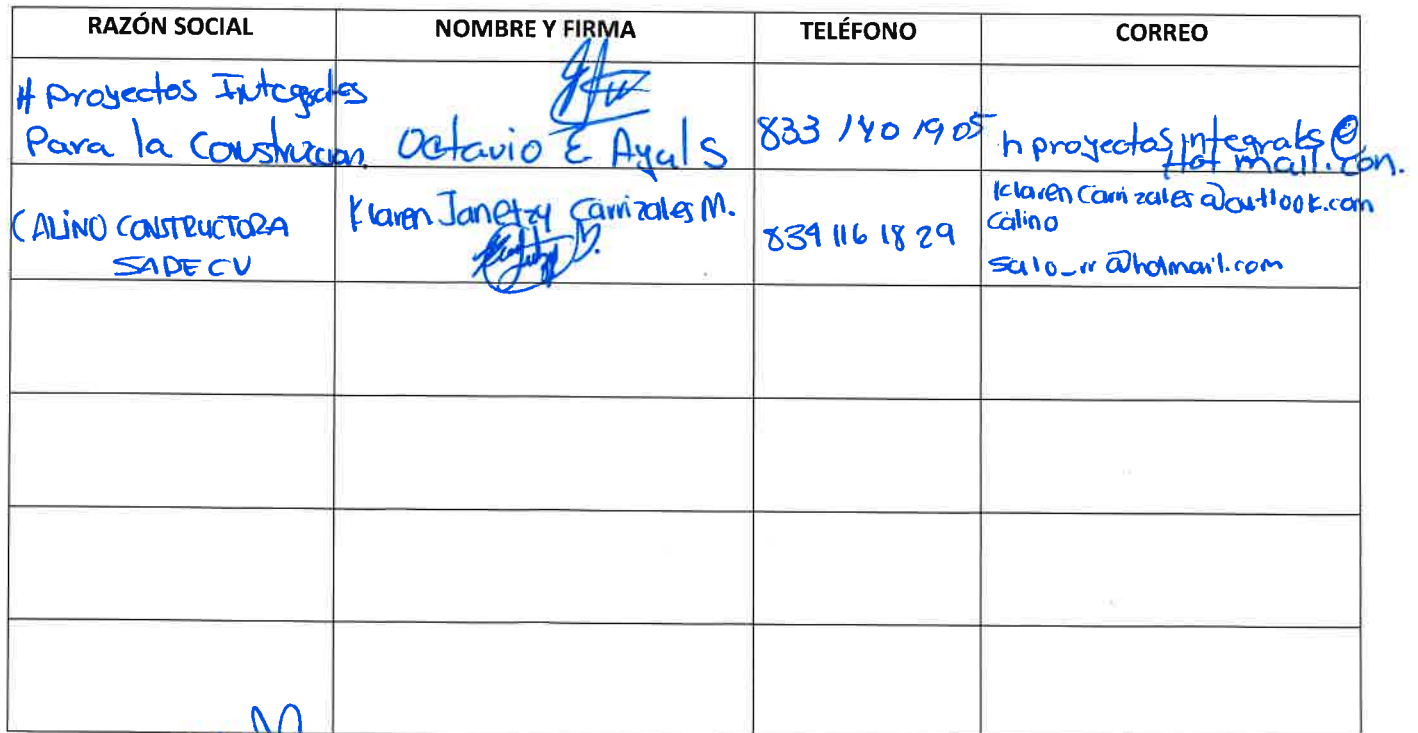 RAZÓN SOCIAL NOMBRE Y FIRMA TELÉFONO CORREO
H Proyectos Integrales
Para la Construccion. Octavio E Ayal S 833 140 1905 h proyectos integrales @
Hotmail.con.
CALINO CONSTRUCTORA
SADECV
Klaren Janetzy Carrizales M.
834 116 18 29
klaren carrizales @outlook.com
calino
salo_rr @hotmail.com